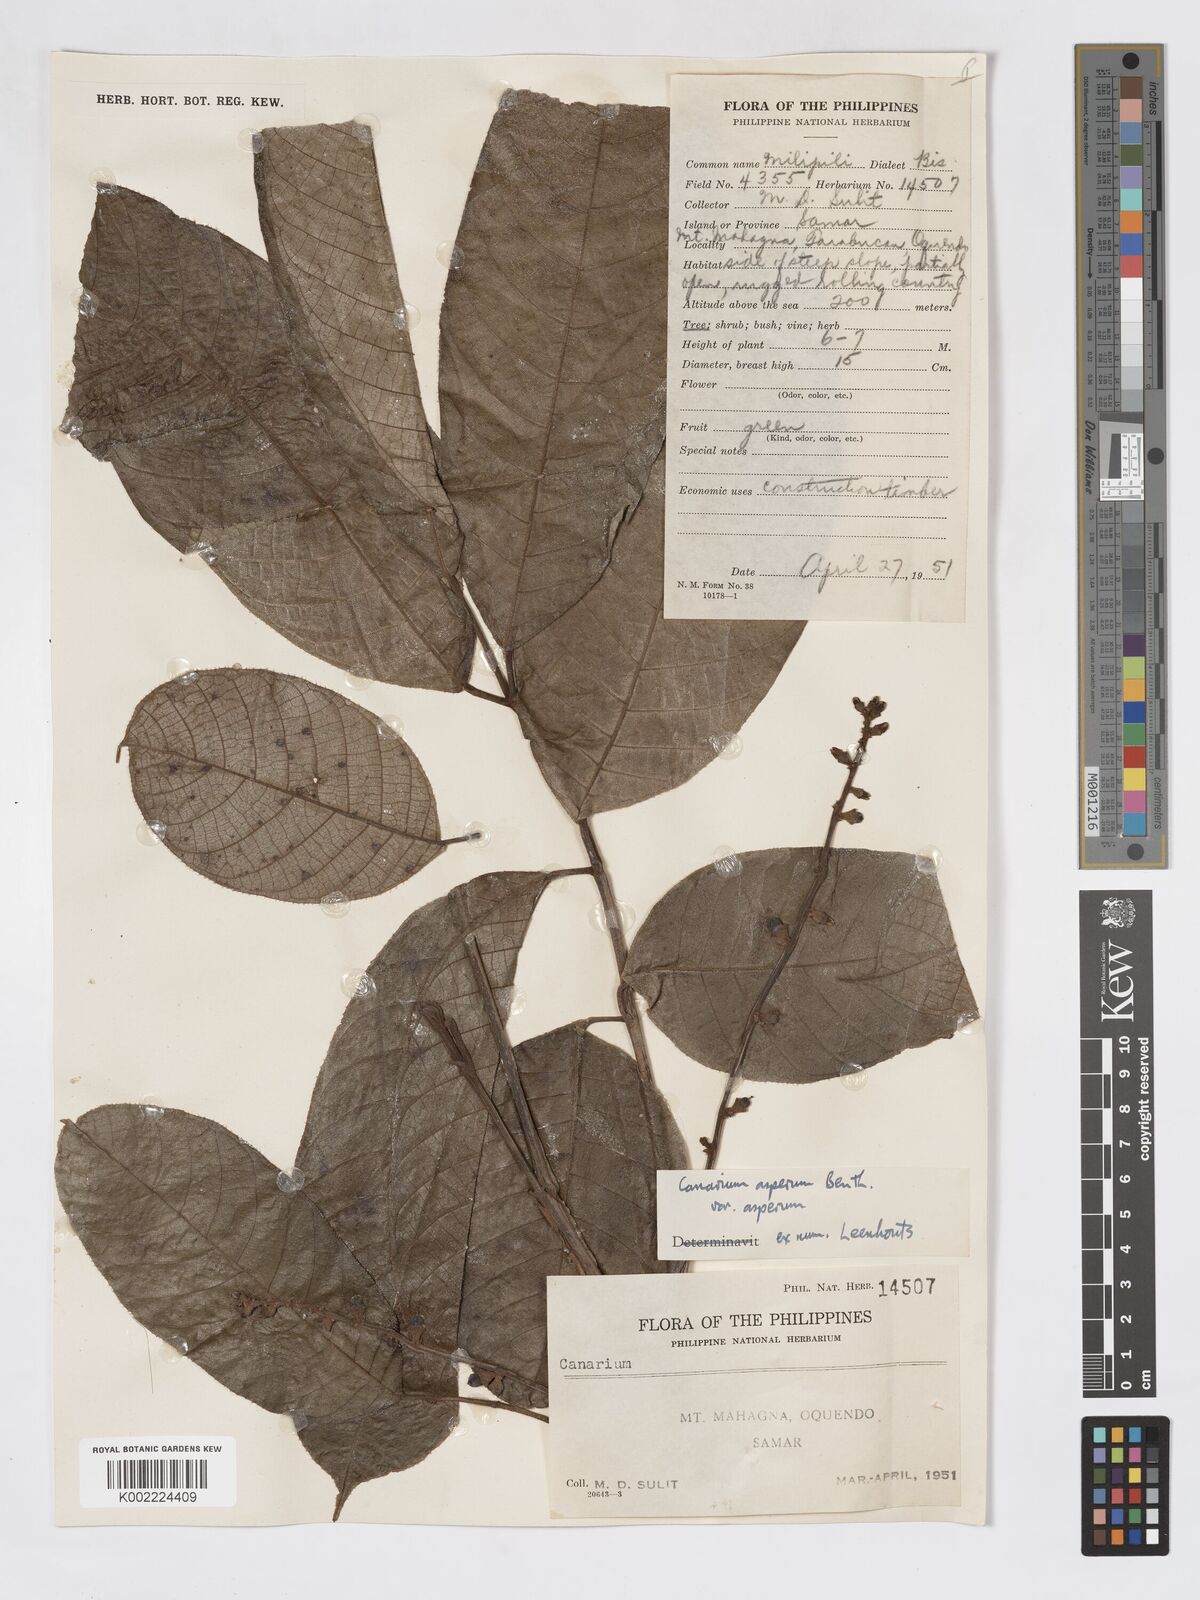 HERB. HORT. BOT. REG. KEW.
FLORA OF THE PHILIPPINES
PHILIPPINE NATIONAL HERBARIUM
Common name Milipili Dialect Bis.
Field No. 4355 Herbarium No. 14507
Collector M. D. Sulit
Island or Province Samar
Locality Mt. Mahagna Oquendo
Habitat side of steep slope, partially
open, rugged rolling country
Altitude above the sea 200 meters.
Tree; shrub; bush; vine; herb
Height of plant 6-7 M.
Diameter, breast high 15 Cm.
Flower
(Odor, color, etc.)
Fruit green
(Kind, odor, color, etc.)
Special notes
Economic uses construction timber
Date April 27, 1951
N. M. Form No. 38
10178—1
Canarium asperum Benth.
var. asperum
Determinavit ex num. Leenhouts
PHIL. NAT. HERB. 14507
FLORA OF THE PHILIPPINES
PHILIPPINE NATIONAL HERBARIUM
Canarium
MT. MAHAGNA, OQUENDO
SAMAR
MAR.-APRIL, 1951
Coll. M. D. SULIT
20643—3
ROYAL BOTANIC GARDENS KEW
K002224409
inches
Don Williams
M001216
centimeters
Royal Botanic Gardens
Kew
copyright reserved
0 1 2 3 4 5 6 7 8 9 10
cm